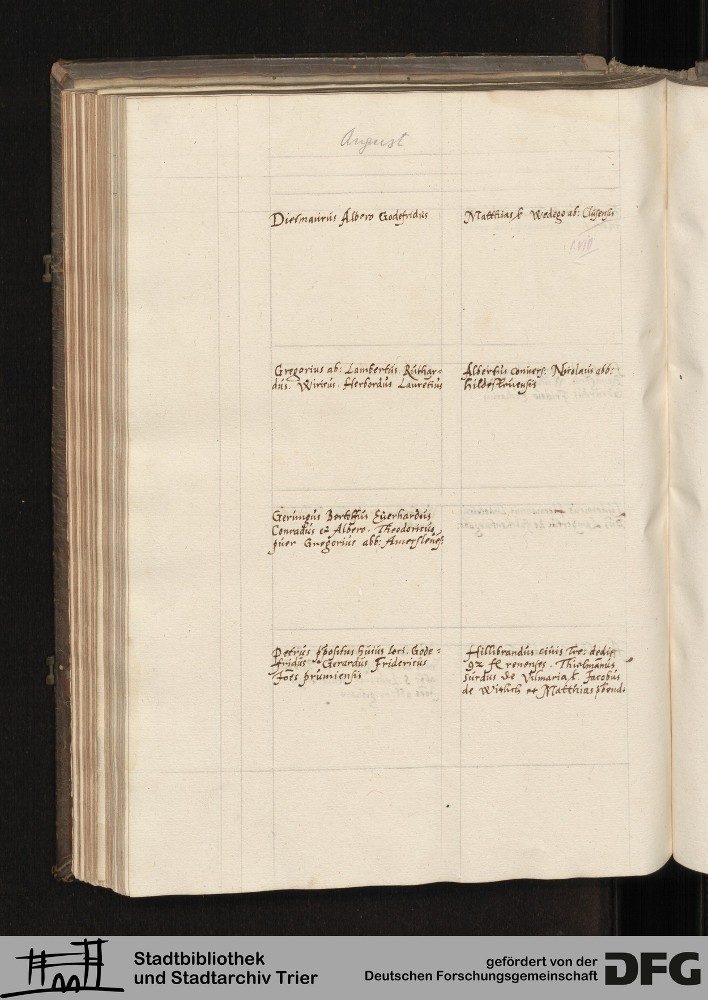 August
Dietmarus Albero Godefridus
Matthias k Wedego ab: Clusensis
LVIII
Gregorius ab: Lambertus. Ruthar=
dus. Wiricus. Herbordus Lauretius
Albertus convers: Nicolaus abb:
Gerungus Bertolfus Euerhardus
Conradus et Albero. Theodoricus
puer Gregorius abb: Amersleuen:
Petrus ppositus huius loci. Gode=
fridus Gerardus Fridericus
Joes prumiensis
Hillibrandus ciuis Tre: dedit
92 fl renenses. Thielmanus
surdus de Vilmaria k. Jacobus
de Witlich et Matthias pbendi
Stadtbibliothek
und Stadtarchiv Trier
gefördert von der
Deutschen Forschungsgemeinschaft
DFG